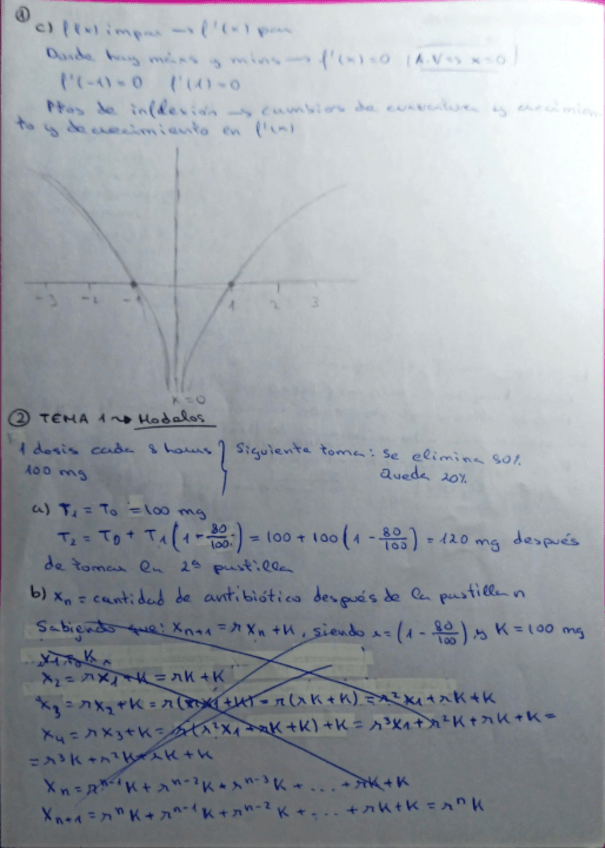 ①
c) f(x) impar → f'(x) par
Donde hay máxs y mins → f'(x)=0 (A.V → x=0)
f'(-1)=0 f'(1)=0
Ptos de inflexión → cambios de curvatura y crecimien-
to y decrecimiento en f'(x)
-3 -2 -1 1 2 3
x=0
② TEMA 1 → Modelos
1 dosis cada 8 horas } Siguiente toma: Se elimina 80%
100 mg Queda 20%
a) T₁ = T₀ = 100 mg
T₂ = T₀ + T₁(1 - 80/100) = 100 + 100(1 - 80/100) = 120 mg después
de tomar la 2ª pastilla
b) Xn = cantidad de antibiótico después de la pastilla n
Sabiendo que: Xn+1 = r Xn + K, siendo r = (1 - 80/100) y K = 100 mg
X₂ = rX₁ + K = rK + K
X₃ = rX₂ + K = r(rX₁ + K) = r(rK + K) = r²X₁ + rK + K
X₄ = rX₃ + K = r(r²X₁ + rK + K) + K = r³X₁ + r²K + rK + K =
= r³K + r²K + rK + K
Xn = rⁿ⁻¹K + rⁿ⁻²K + rⁿ⁻³K + ... + rK + K
Xn+1 = rⁿK + rⁿ⁻¹K + rⁿ⁻²K + ... + rK + K = rⁿK